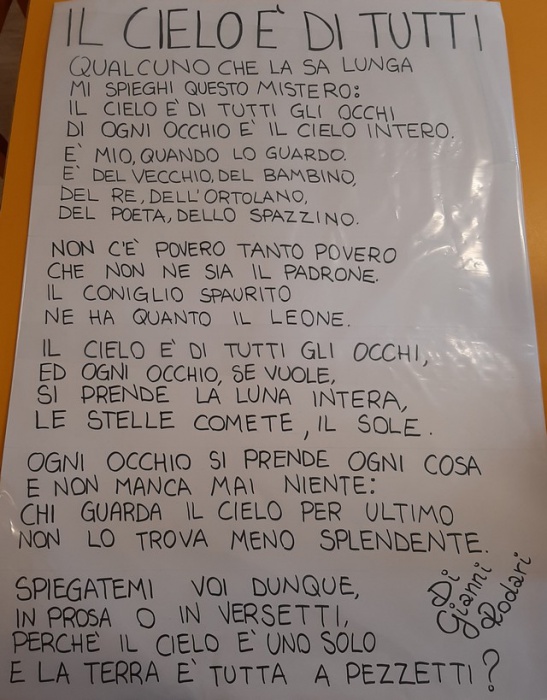 IL CIELO È DI TUTTI
QUALCUNO CHE LA SA LUNGA
MI SPIEGHI QUESTO MISTERO:
IL CIELO È DI TUTTI GLI OCCHI
DI OGNI OCCHIO È IL CIELO INTERO.
È MIO, QUANDO LO GUARDO.
È DEL VECCHIO, DEL BAMBINO,
DEL RE, DELL'ORTOLANO,
DEL POETA, DELLO SPAZZINO.
NON C'È POVERO TANTO POVERO
CHE NON NE SIA IL PADRONE.
IL CONIGLIO SPAURITO
NE HA QUANTO IL LEONE.
IL CIELO È DI TUTTI GLI OCCHI,
ED OGNI OCCHIO, SE VUOLE,
SI PRENDE LA LUNA INTERA,
LE STELLE COMETE, IL SOLE.
OGNI OCCHIO SI PRENDE OGNI COSA
E NON MANCA MAI NIENTE:
CHI GUARDA IL CIELO PER ULTIMO
NON LO TROVA MENO SPLENDENTE.
SPIEGATEMI VOI DUNQUE,
IN PROSA O IN VERSETTI,
PERCHÈ IL CIELO È UNO SOLO
E LA TERRA È TUTTA A PEZZETTI?
Di
Gianni
Rodari